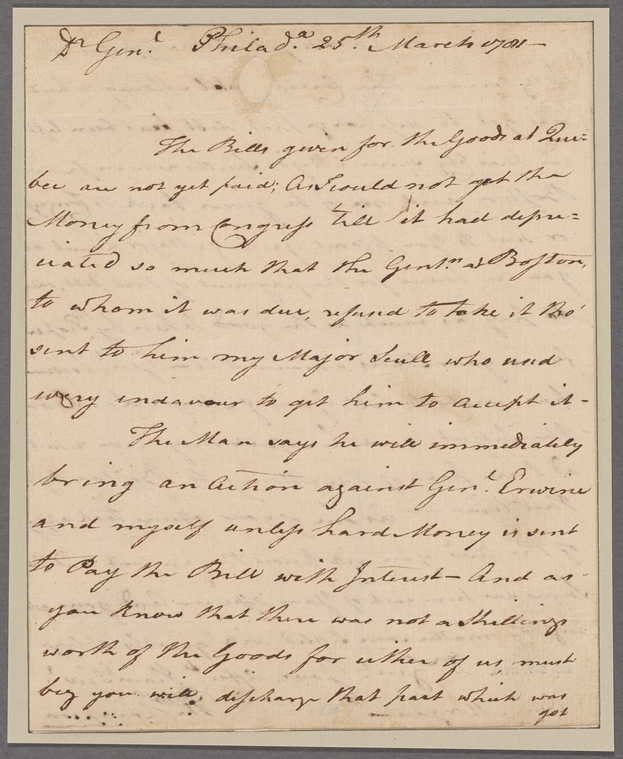 Dr Genl. Philada. 25th. March 1781—
The Bills given for the Goods at Que=
bec are not yet paid; As I could not get the
Money from Congress 'till it had depre=
ciated so much that the Gentn. at Boston,
to whom it was due, refused to take it tho'
sent to him my Major Scull who used
every endavour to get him to accept it—
The Man says he will immediately
bring an Action against Genl. Erwine
and myself unless hard Money is sent
to Pay the Bill with Interest— And as
you know that there was not a Shillings
worth of the Goods for either of us must
beg you will, discharge that part which was
got